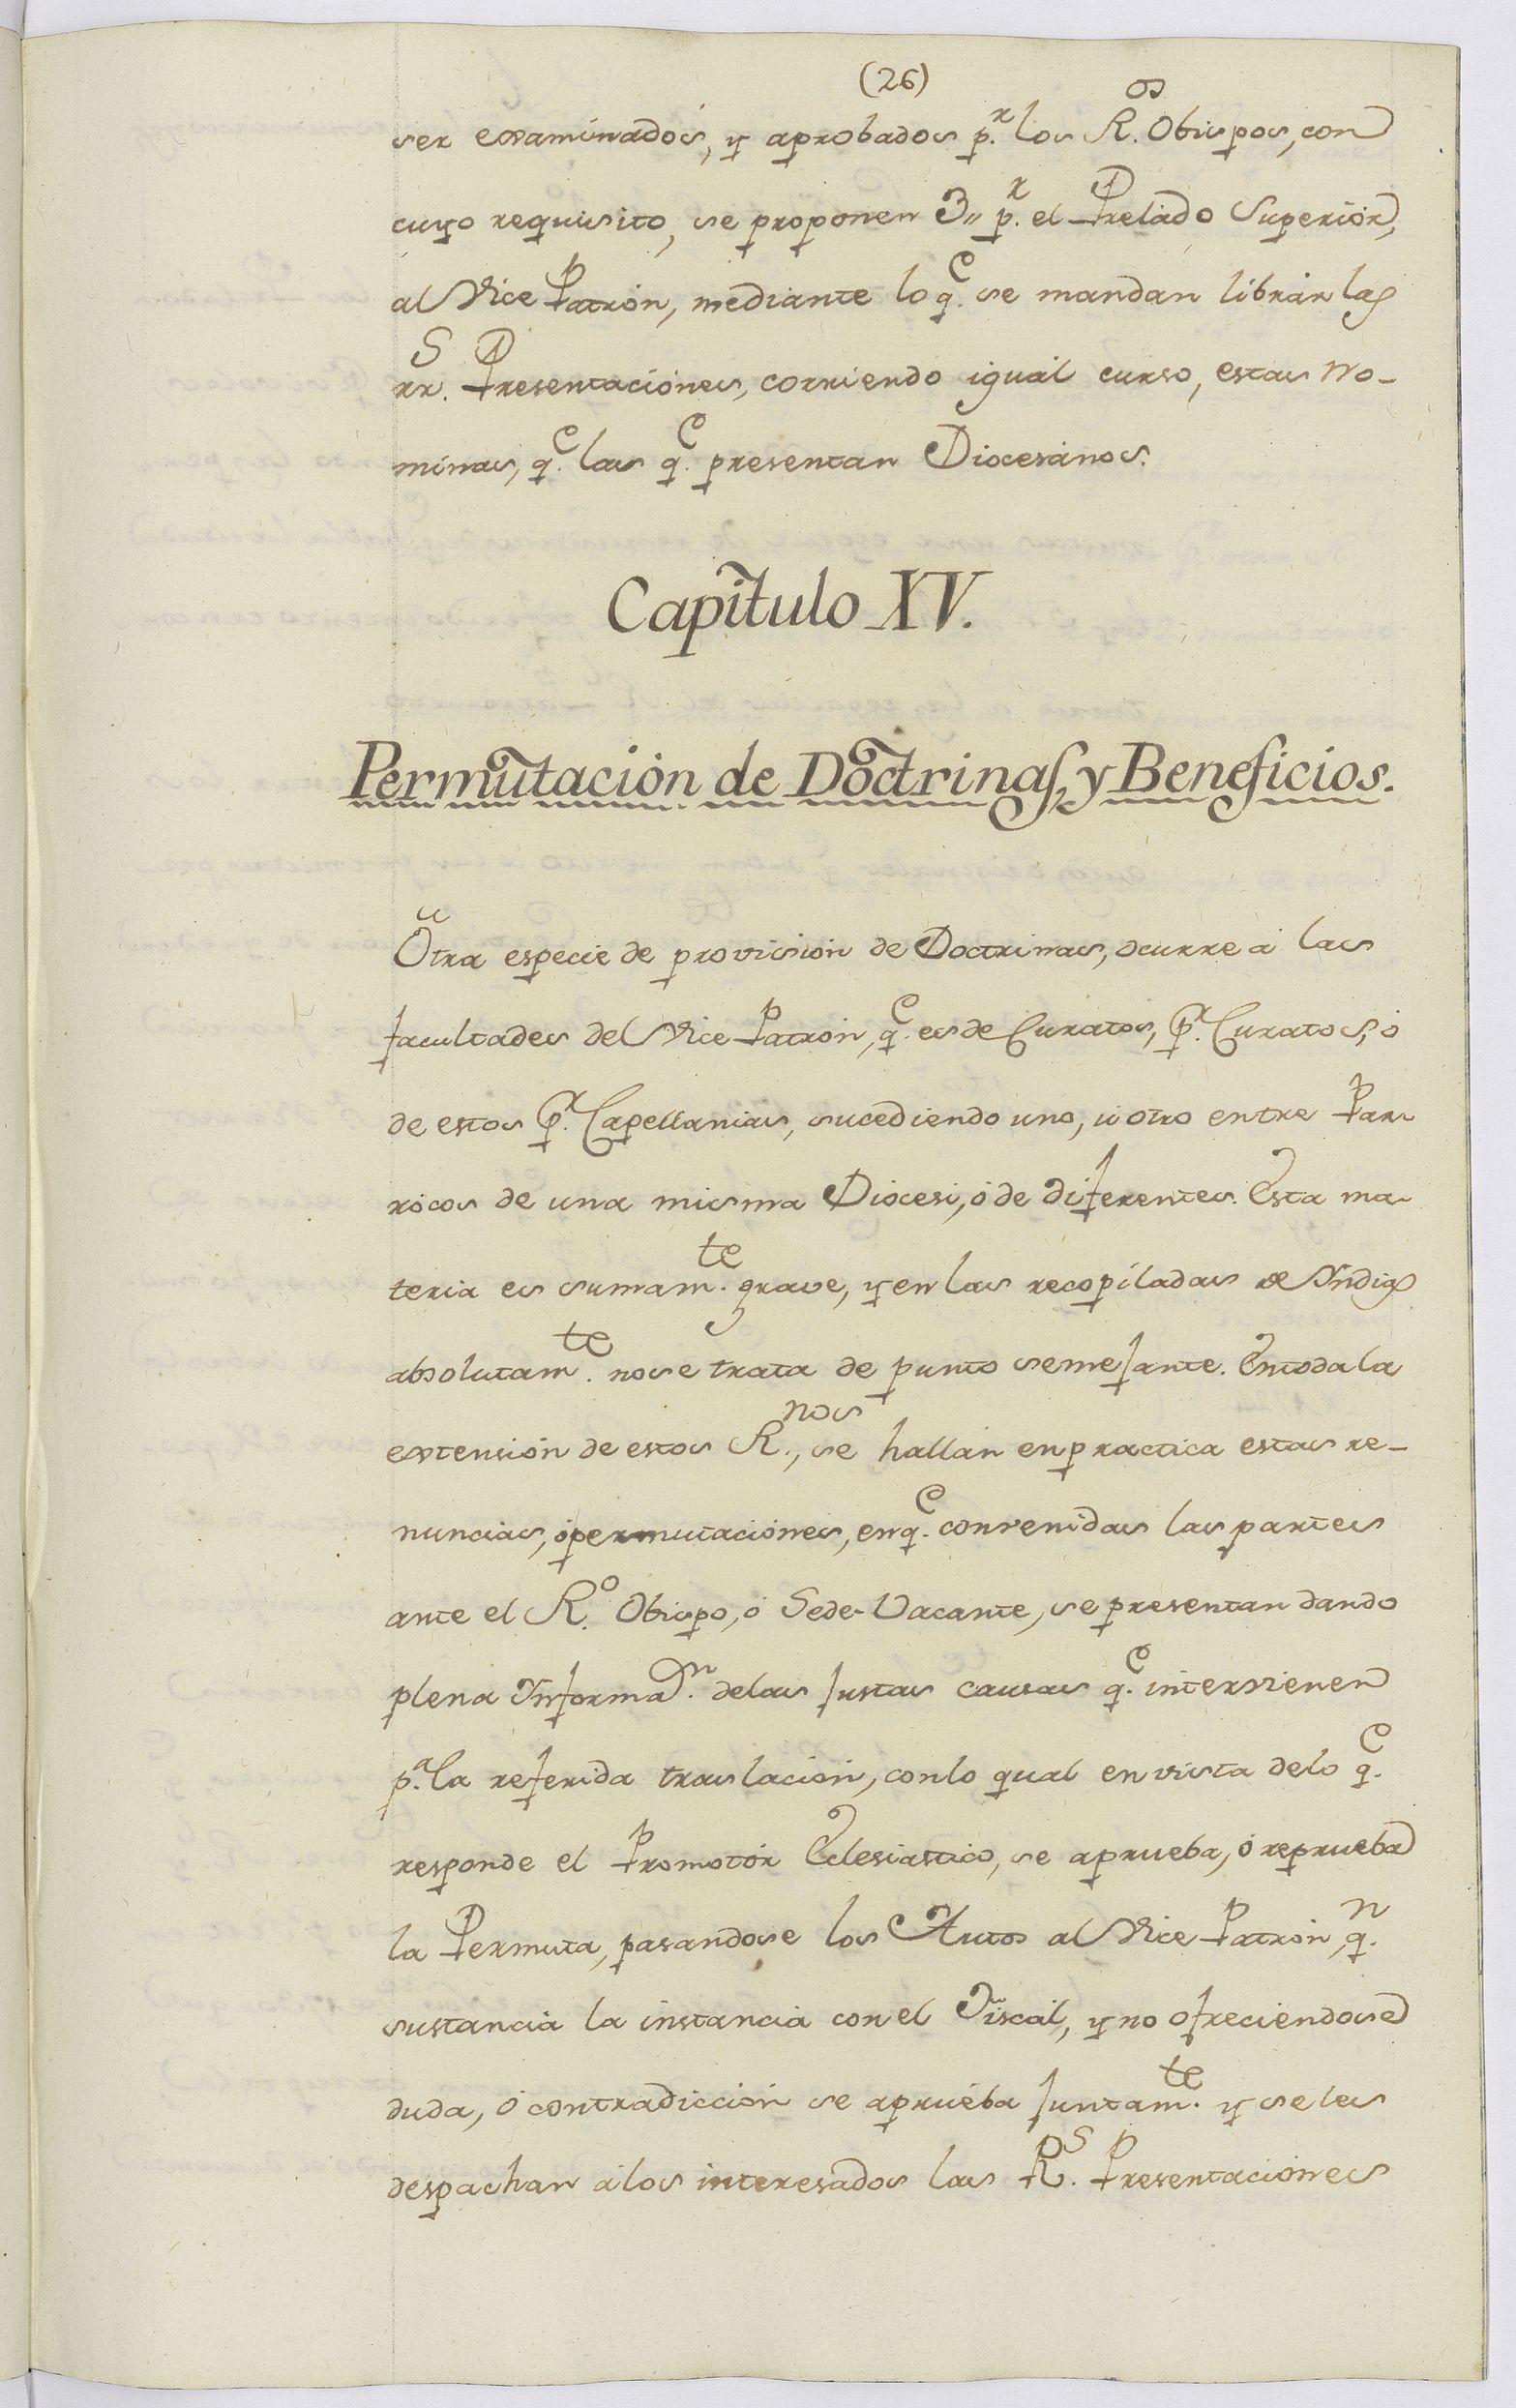 (26)
ser examinados, y aprobados p.r los R.os Obispos, con
cuyo requisito, se proponen 3,, p.r el Prelado Superiór,
al Vice Patrón, mediante lo q.e se mandan librar las
rr.s Presentaciónes, corriendo igual curso, estas No-
minas, q.e las q.e presentan Diocesános.
Capitulo XV.
Permutación de Doctrinas, y Beneficios.
Otra especie de provisión de Doctrinas, ocurre á las
facultades del Vice Patrón, q.e es de Curatos, p.r Curatos, ó
de estos p.r Capellanias, sucediendo uno, ú otro entre Par-
rócos de una misma Diócesi, ó de diferentes. Esta ma-
teria es sumam.te grave, y en las recopiladas de Yndias
absolutam.te no se trata de punto semejante. En toda la
extensión de estos R.nos, se hallan en practica estas re-
nuncias, ó permutaciónes, en q.e convenidas las partes
ante el R.o Obispo, ó Sede-Vacante, se presentan dando
plena Ynforma.on de las justas causas q.e intervienen
p.a la referida traslación, con lo qual en vista de lo q.e
responde el Promotór Eclesiastico, se aprueba, ó reprueba
la Permuta, pasandose los Autos al Vice Patrón, q.n
sustancia la instancia con el Fiscal, y no ofreciendose
duda, ó contradicción se aprueba juntam.te y se les
despachan á los interesados las R.s Presentaciónes